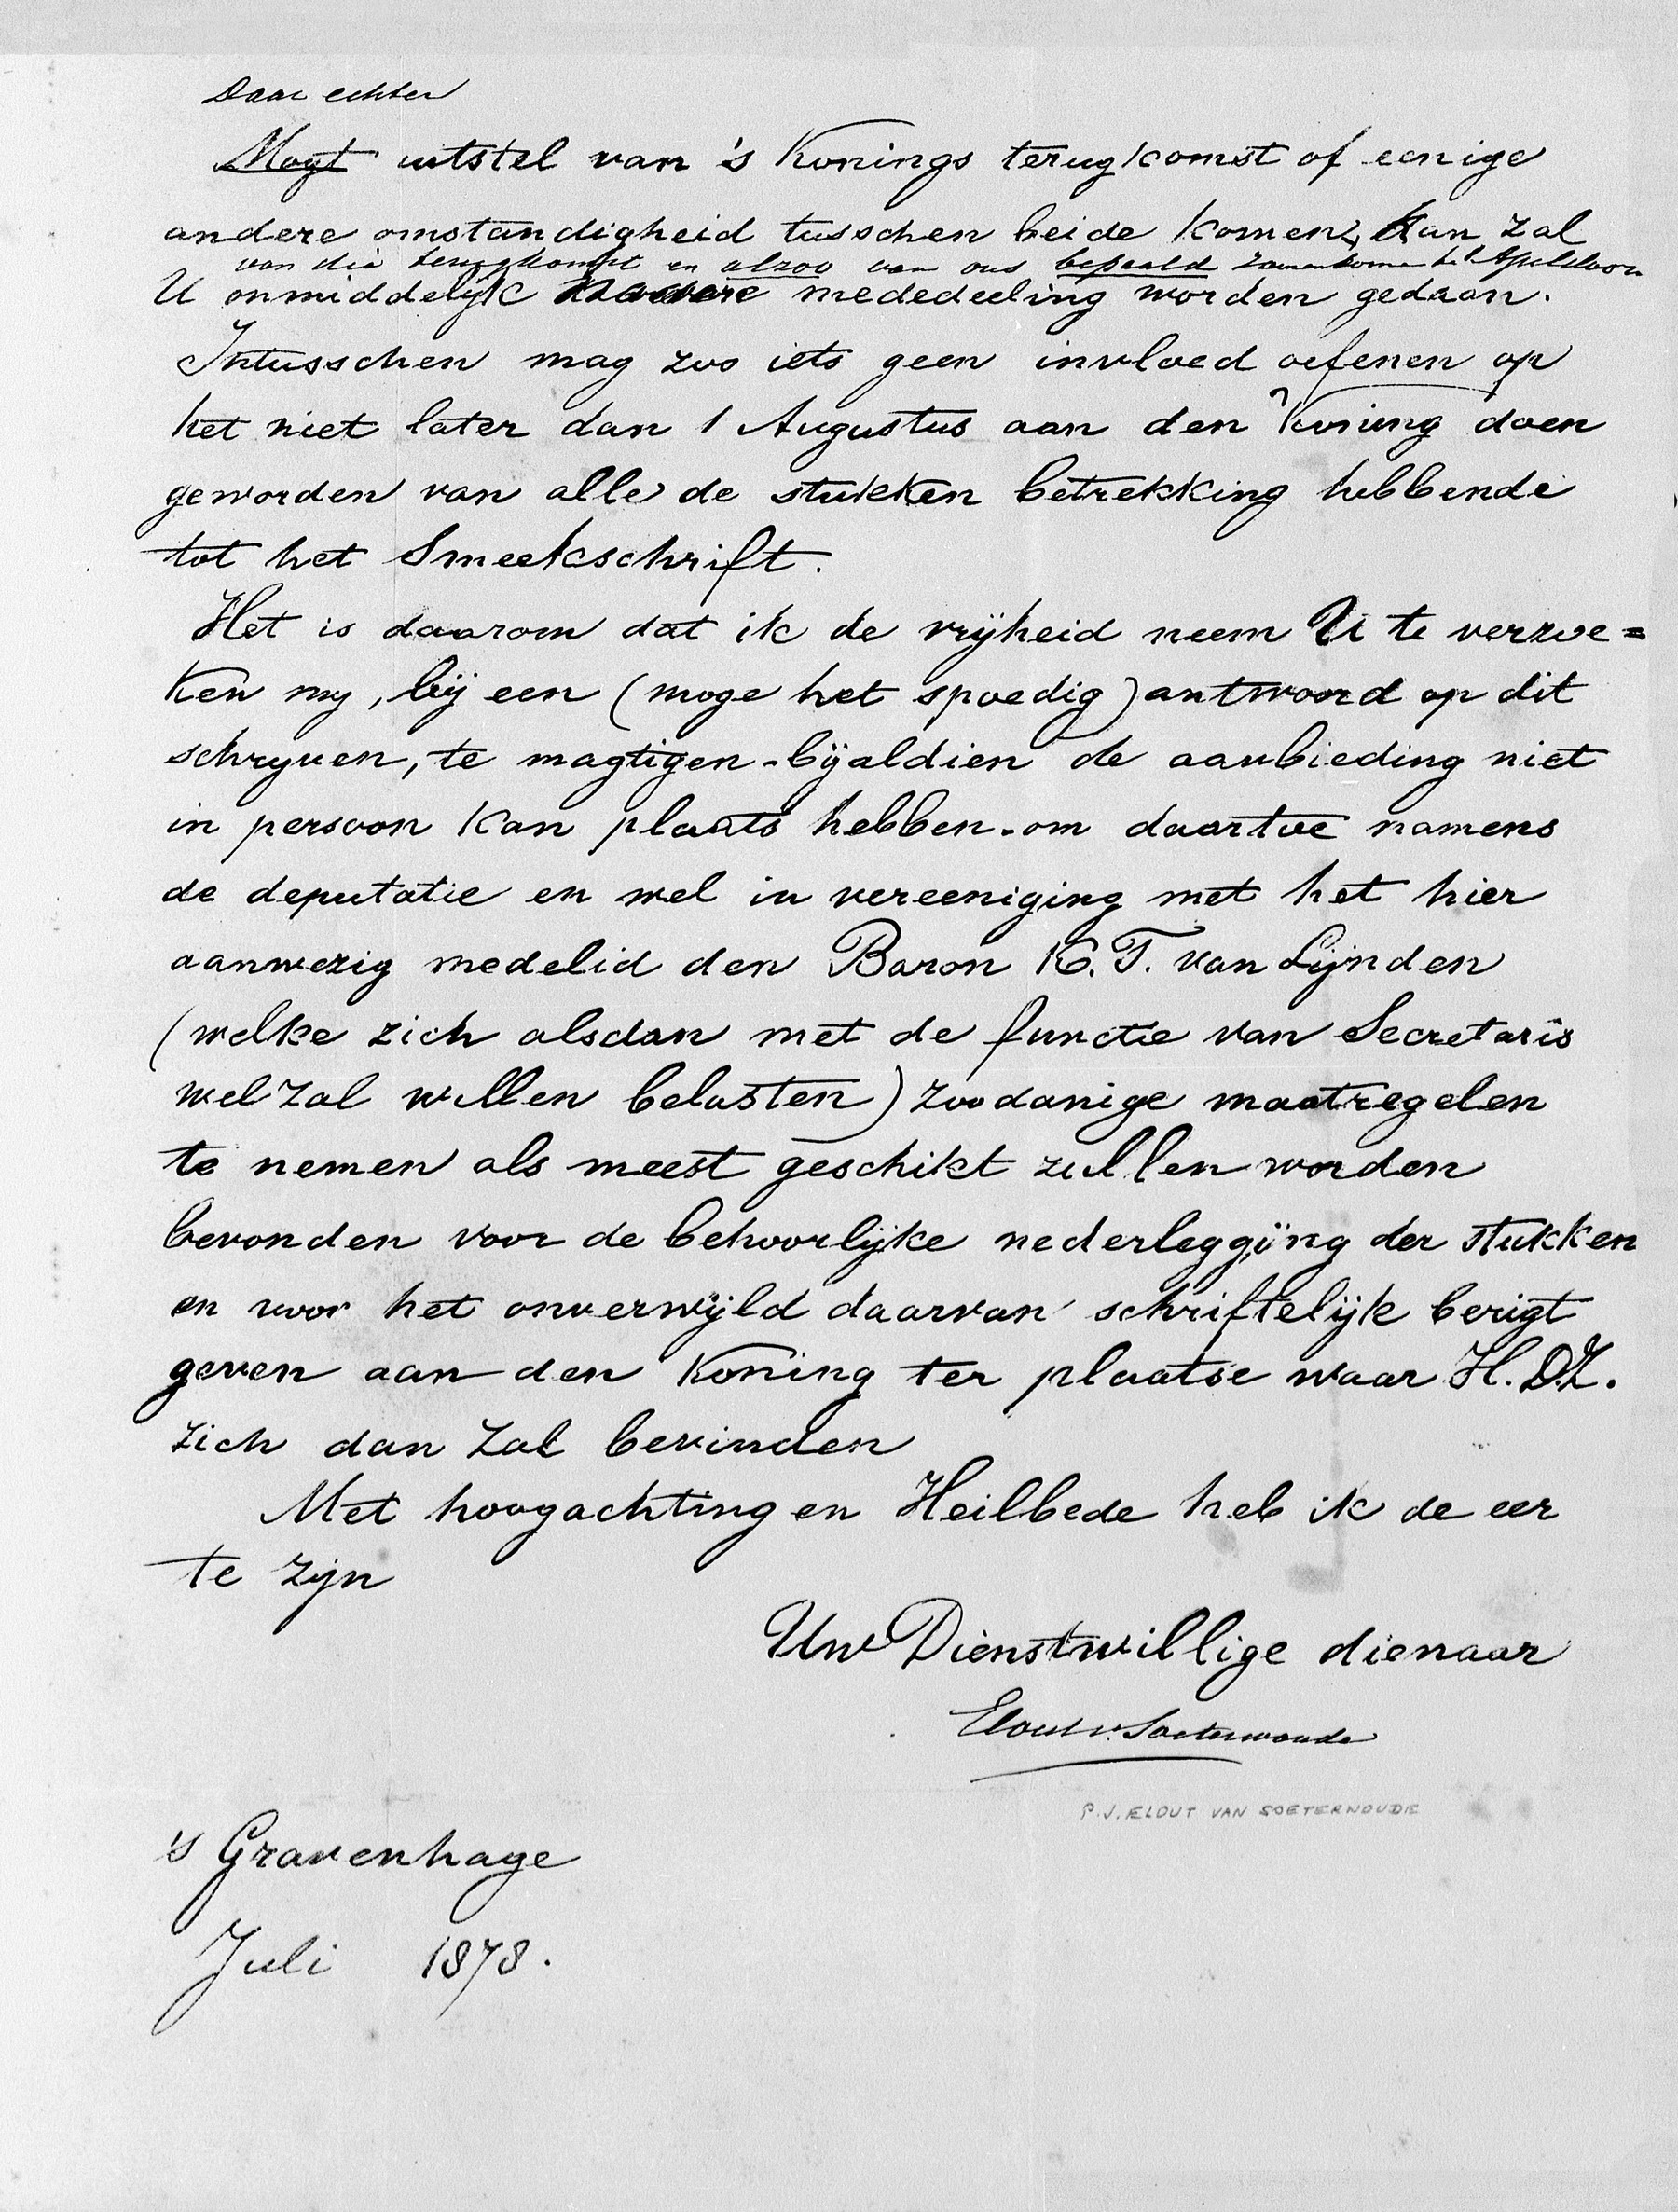 Daar echter
Mogt uitstel van 's Konings terugkomst of eenige
andere omstandigheid tusschen beide komen, kan zal
van die terugkomst en alzoo van ons bepaald zamenkomen te Apeldoorn
U onmiddelijk nadere mededeeling worden gedaan.
Intusschen mag zoo iets geen invloed oefenen op
het niet later dan 1 Augustus aan den Koning doen
geworden van alle de stukken betrekking hebbende
tot het Smeekschrift.
Het is daarom dat ik de vrijheid neem U te verzoe=
ken my, bij een (moge het spoedig) antwoord op dit
schryven, te magtigen - bijaldien de aanbieding niet
in persoon kan plaats hebben - om daartoe namens
de deputatie en wel in vereeniging met het hier
aanwezig medelid den Baron K. T. van Lijnden
(welke zich alsdan met de functie van Secretaris
wel zal willen belasten) zoodanige maatregelen
te nemen als meest geschikt zullen worden
bevonden voor de behoorlijke nederlegging der stukken
en voor het onverwijld daarvan schriftelijk berigt
geven aan den Koning ter plaatse waar H. D. Z.
zich dan zal bevinden
Met hoogachting en Heilbede heb ik de eer
te zijn
Uw Dienstwillige dienaar
Elout v. Soeterwoude
P. J. ELOUT VAN SOETERWOUDE
's Gravenhage
Juli 1878.